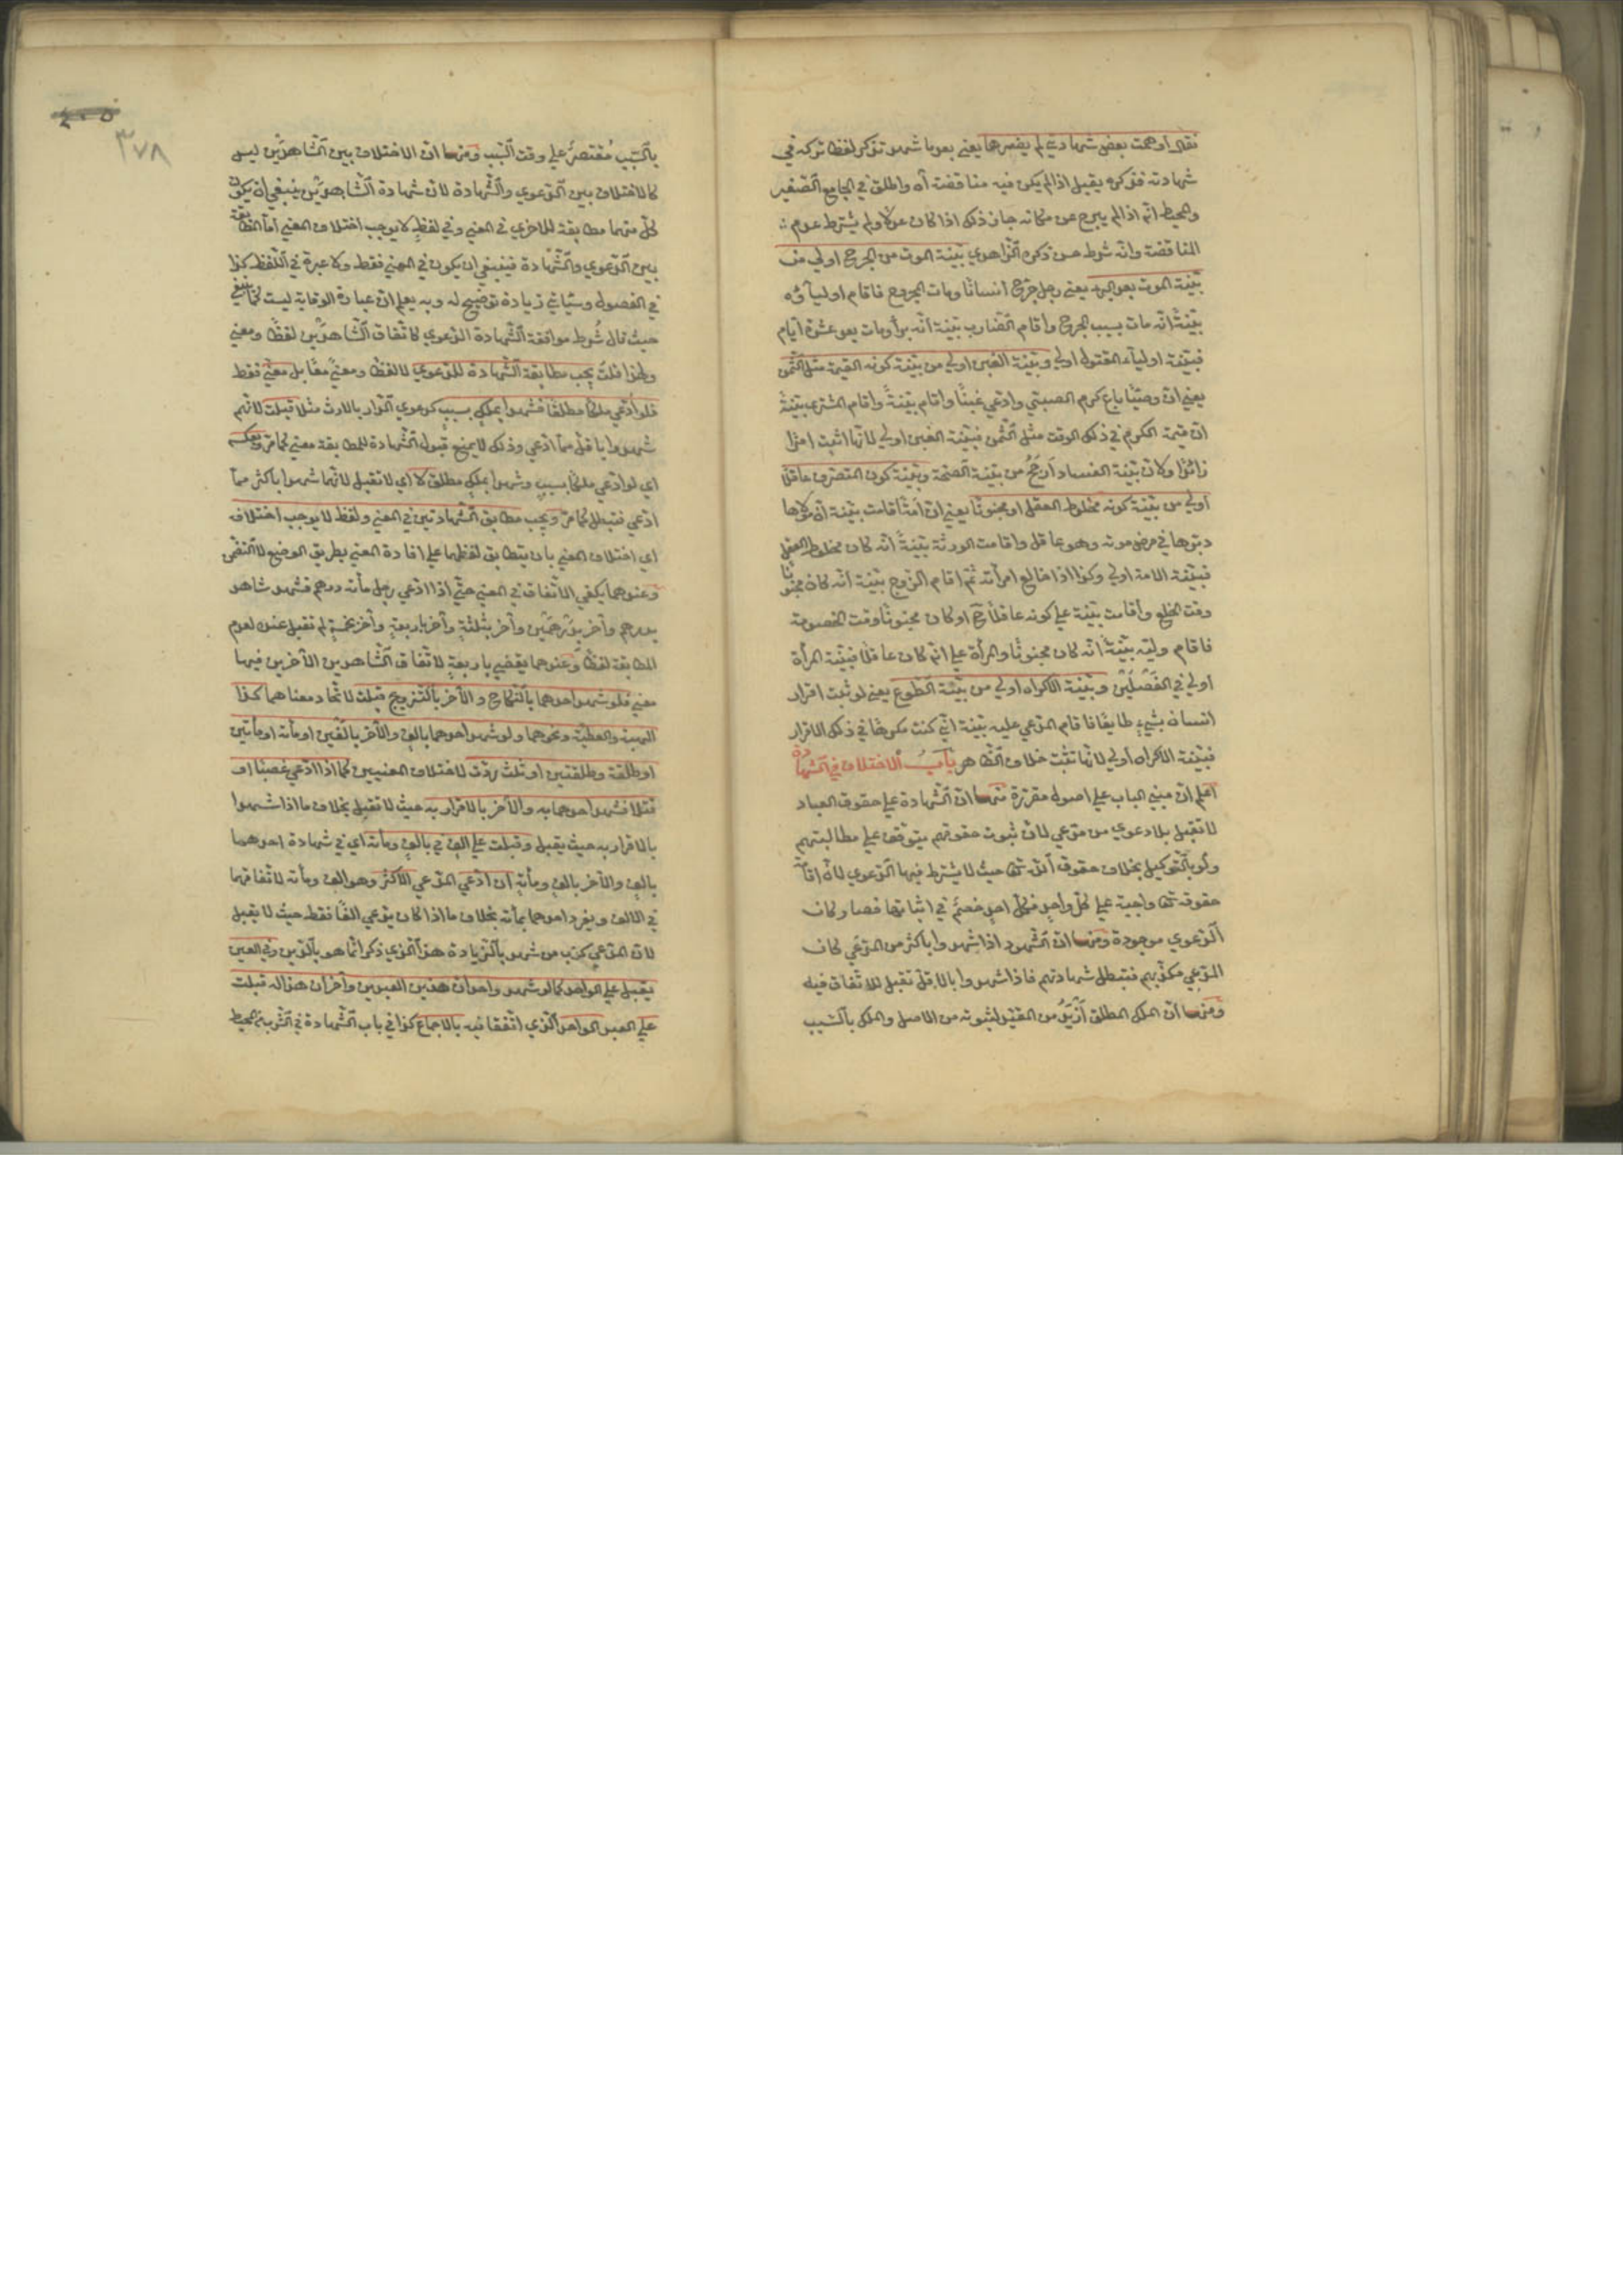 فقال اوهمت بعض شهادتي لم يضرها يعني بعدما شهد تذكر لفظا تركه في
شهادته فذكره يقبل اذا لم يكن فيه مناقضة آه واطلق في الجامع الصغير
والمحيط انه اذا لم يبرح عن مكانه جاز ذلك اذا كان عدلا ولم يشترط عدم
المناقضة وانه شرط حسن ذكره الزاهدي بينة الموت من الجرح اولى من
بينة الموت بعد البرء يعني رجل جرح انسانا ومات المجروح فاقام اولياؤه
بينة انه مات بسبب الجرح واقام الضارب بينة انه برأ ومات بعد عشرة ايام
فبينة اولياء المقتول اولى وبينة الغبن اولى من بينة كونه القيمة مثل الثمن
يعني ان وصيا باع كرم الصبي وادعى غبنا واقام بينة واقام المشتري بينة
ان قيمة الكرم في ذلك الوقت مثل الثمن فبينة الغبن اولى لانها اثبت امرا
زائدا ولان بينة الفساد ارجح من بينة الصحة وبينة كون المتصرف عاقلا
اولى من بينة كونه مخلوط العقل او مجنونا يعني ان امة اقامت بينة ان مولاها
دبرها في مرض موته وهو عاقل واقامت الورثة بينة انه كان مخلوط العقل
فبينة الامة اولى وكذا اذا خالع امرأته ثم اقام الزوج بينة انه كان مجنونا
وقت الخلع واقامت بينة على كونه عاقلا ح او كان مجنونا وقت الخصومة
فاقام وليه بينة انه كان مجنونا والمرأة على انه كان عاقلا فبينة المرأة
اولى في الفصلين وبينة الاكراه اولى من بينة الطوع يعني لو ثبت اقرار
انسان بشيء طايعا فاقام المدعى عليه بينة اني كنت مكرها في ذلك الاقرار
فبينة الاكراه اولى لانها تثبت خلاف الظاهر باب الاختلاف في الشهادة
اعلم ان مبنى الباب على اصول مقررة منها ان الشهادة على حقوق العباد
لا تقبل بلا دعوى من مدعي لان ثبوت حقوقهم يتوقف على مطالبتهم
ولو بالتوكيل بخلاف حقوق الله تعا حيث لا يشترط فيها الدعوى لان اقامة
حقوقه تعا واجبة على كل واحد فكل احد خصم في اثباتها فصار كان
الدعوى موجودة ومنها ان الشهود اذا شهدوا باكثر من المدعى كان
المدعي مكذبهم فتبطل شهادتهم فاذا شهدوا بالاقل تقبل للاتفاق فيه
ومنها ان الملك المطلق ازيد من المقيد لثبوته من الاصل والملك بالسبب
٤٠٥
٣٧٨
بالسبب مقتصر على وقت السبب ومنها ان الاختلاف بين الشاهدين ليس
كالاختلاف بين الدعوى والشهادة لان شهادة الشاهدين ينبغي ان يكون
كل منهما مطابقة للاخرى في المعنى وفي لفظ لا يوجب اختلاف المعنى اما المطابقة
بين الدعوى والشهادة فينبغي ان يكون في المعنى فقط ولا عبرة في اللفظ كذا
في الفصول وسيأتي زيادة توضيح له وبه يعلم ان عبارة الوقاية ليست كما ينبغي
حيث قال شرط موافقة الشهادة الدعوى كاتفاق الشاهدين لفظا ومعنى
ولهذا قلت يجب مطابقة الشهادة للدعوى لا لفظا ومعنى مقابل معنى فقط
فلو ادعى ملكا مطلقا فشهدوا بملك بسبب كدعوى الدار بالارث مثلا قبلت لانهم
شهدوا باقل مما ادعى وذلك لا يمنع قبول الشهادة للمطابقة معنى كما مر وبعكسه
اي لو ادعى ملكا بسبب وشهدوا بملك مطلق لا اي لا تقبل لانهما شهدوا باكثر مما
ادعى فتبطل كما مر ويجب مطابق الشهادتين في المعنى ولفظ لا يوجب اختلاف
اي اختلاف المعنى بان يتطابق لفظهما على افادة المعنى بطريق الوضع لا التضمن
وعندهما يكفي الاتفاق في المعنى حتى اذا ادعى رجل مأته درهم فشهد شاهد
بدرهم وآخر بدرهمين وآخر بثلثة وآخر باربعة وآخر بخمسة لم تقبل عنده لعدم
المطابقة لفظا وعندهما يقضي باربعة لاتفاق الشاهدين الاخرين فيها
معنى فلو شهد احدهما بالنكاح والآخر بالتزويج قبلت لاتحاد معناهما كذا
الهبة والعطية ونحوهما ولو شهد احدهما بالف والآخر بالفين او مأته او مأتين
او طلقة وطلقتين او ثلث ردت لاختلاف المعنيين كما اذا ادعى غصبا او
قتلا فشهد احدهما به والآخر بالاقرار به حيث لا تقبل بخلاف ما اذا شهدوا
بالاقرار به حيث يقبل وقبلت على الف في بالف ومأته اي في شهادة احدهما
بالف والآخر بالف ومأته ان ادعى المدعي الاكثر وهو الف ومأته لاتفاقهما
في الالف ويفرد احدهما بمأته بخلاف ما اذا كان يدعي الفا فقط حيث لا يقبل
لان المدعي كذب من شهد بالزيادة هذا الذي ذكر انما هو بالدين وفي العين
يقبل على الواحد كما لو شهد واحد ان هذين العبدين وآخر ان هذا له قبلت
على العبد الواحد الذي اتفقا فيه بالاجماع كذا في باب الشهادة في الشرب من المحيط